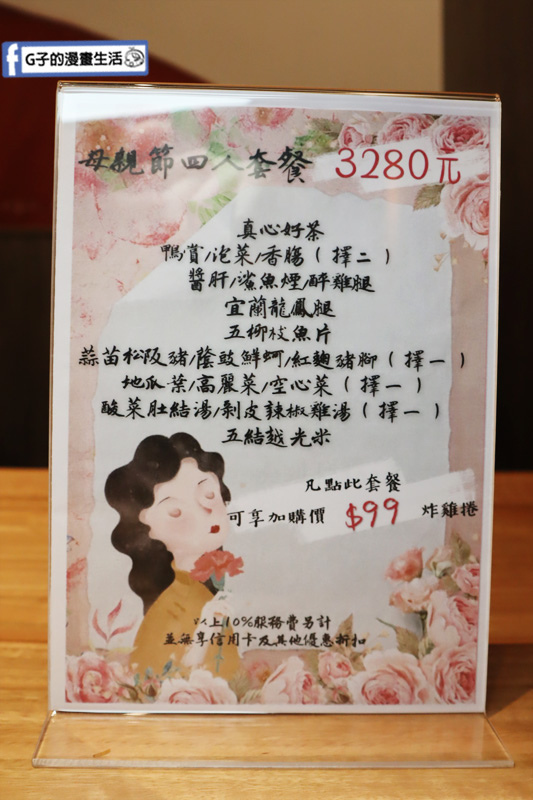 G子的漫畫生活
母親節四人套餐 3280元
真心好茶
鴨賞/泡菜/香腸(擇二)
醬肝/鯊魚煙/醉雞腿
宜蘭龍鳳腿
五柳枝魚片
蒜苗松阪豬/蔭豉鮮蚵/紅麴豬腳(擇一)
地瓜葉/高麗菜/空心菜(擇一)
酸菜肚結湯/剝皮辣椒雞湯(擇一)
五結越光米
凡點此套餐
可享加購價 $99 炸雞捲
以上10%服務費另計
並無享信用卡及其他優惠折扣